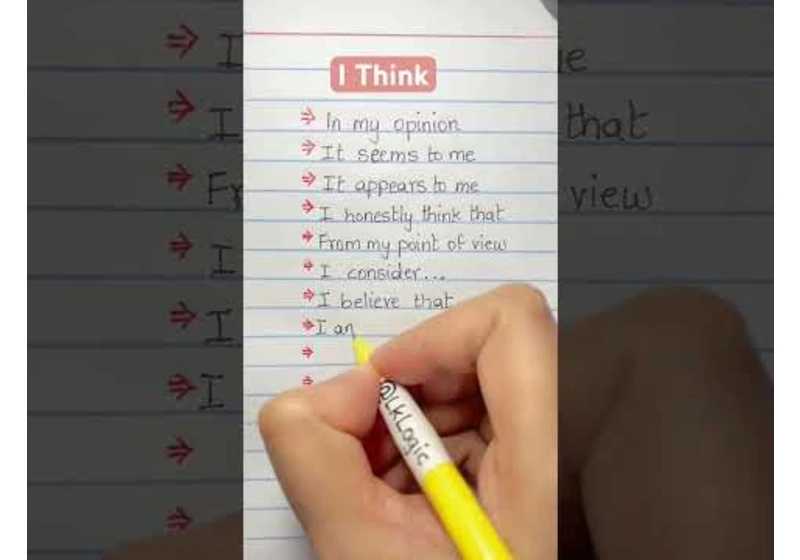 I Think
⇒ In my opinion
⇒ It seems to me
⇒ It appears to me
⇒ I honestly think that
⇒ From my point of view
⇒ I consider...
⇒ I believe that
⇒ I an
⇒
⇒
@LkLogic